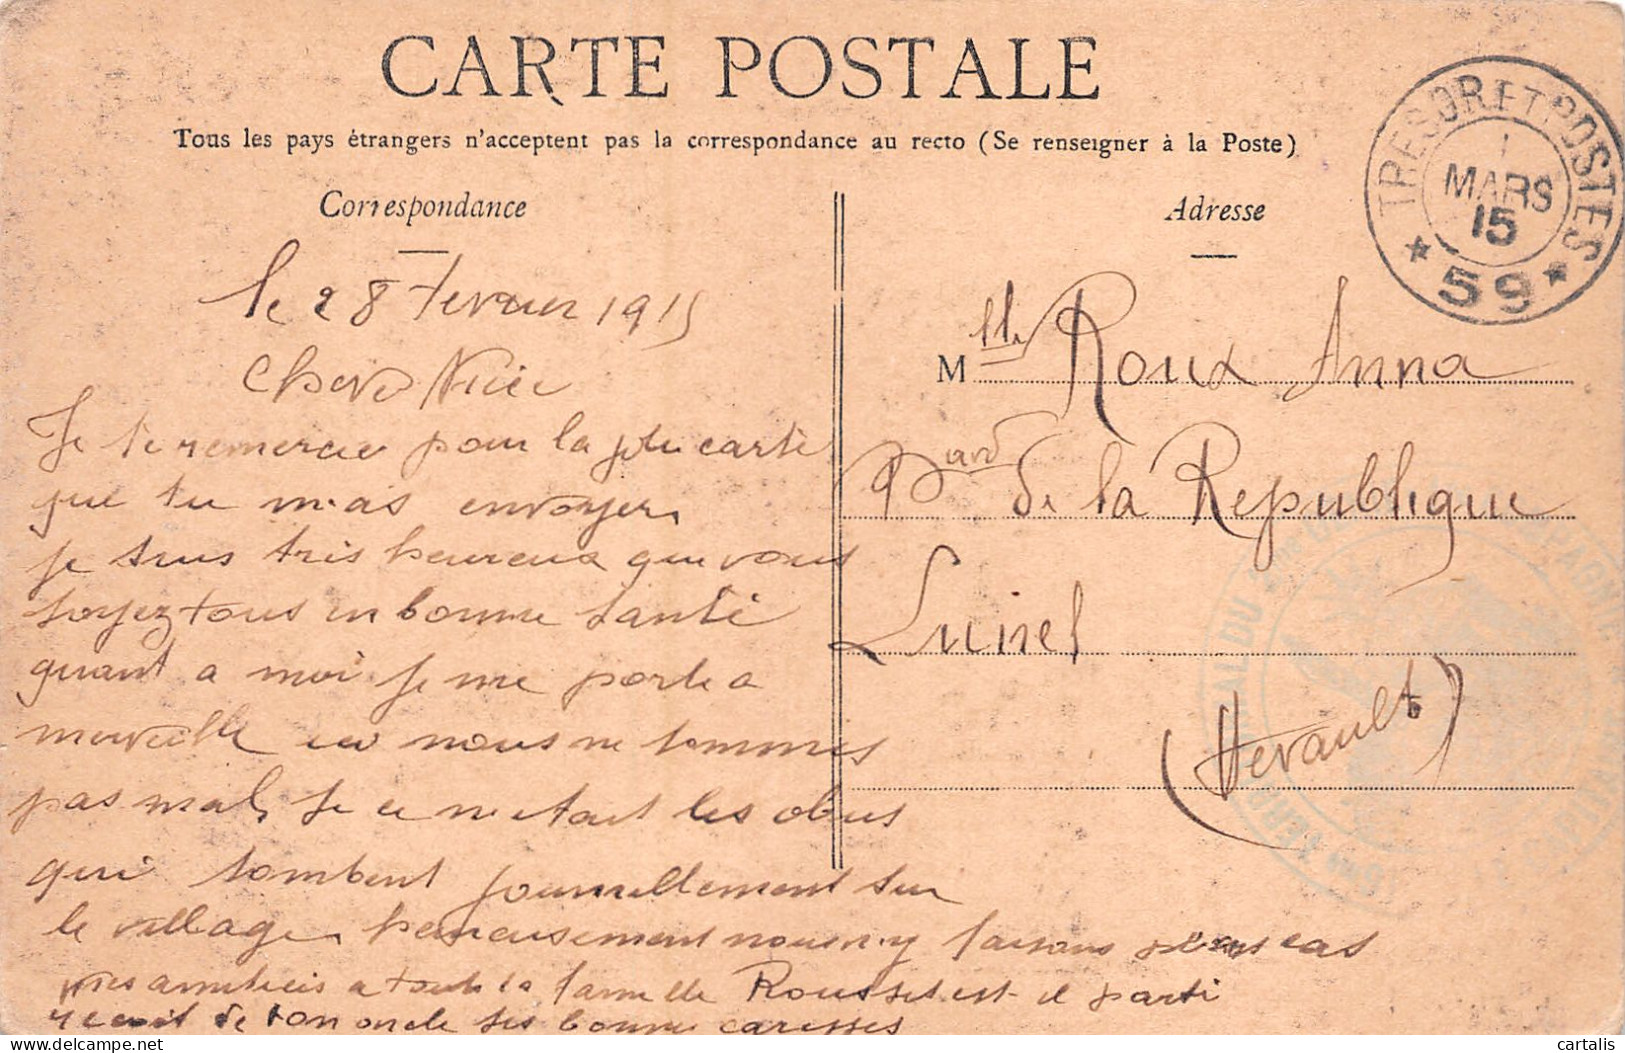 CARTE POSTALE
Tous les pays étrangers n'acceptent pas la correspondance au recto (Se renseigner à la Poste)
Correspondance
Adresse
TRESOR ET POSTES
1
MARS
15
* 59 *
le 28 Fevrier 1915
Chere Niece
Je te remercie pour la jolie carte
que tu m'as envoyer
je suis tres heureux que vous
soyez tous en bonne santé
quant a moi je me porte a
merveille ici nous ne sommes
pas mal, si ce n'etait les obus
qui tombent journellement sur
le village heureusement nous n'y faisons pas cas
mes amities a toute la famille Rousset est-il parti
recoit de ton oncle ses bonne caresses
Mlle Roux Anna
Bard de la Republique
Lunel
(Herault)